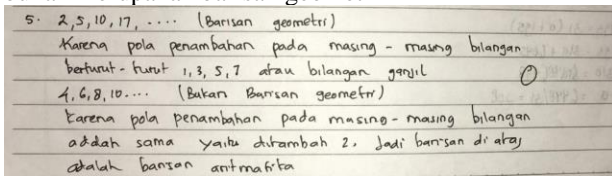 5. 2, 5, 10, 17, .... (Barisan geometri)
Karena pola penambahan pada masing - masing bilangan
berturut - turut 1, 3, 5, 7 atau bilangan ganjil
0
4, 6, 8, 10.... (Bukan Barisan geometri)
Karena pola penambahan pada masing - masing bilangan
adalah sama yaitu ditambah 2. Jadi barisan di atas
adalah barisan aritmatika